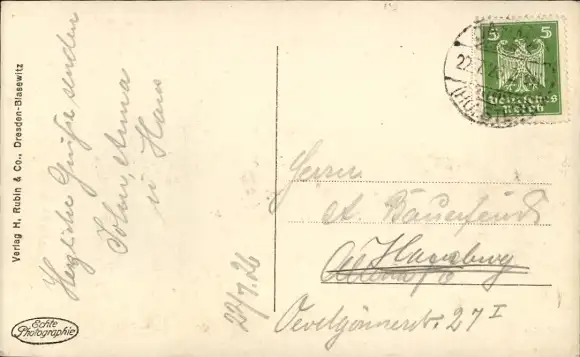 Verlag H. Rubin & Co., Dresden-Blasewitz
Echte
Photographie
Herzliche Grüße senden
Anna
u Hans
22/7.26
5 5
Deutsches
Reich
Herrn
A. Bauerfeind
Hamburg
Altona
Oevelgönnerstr. 27 I